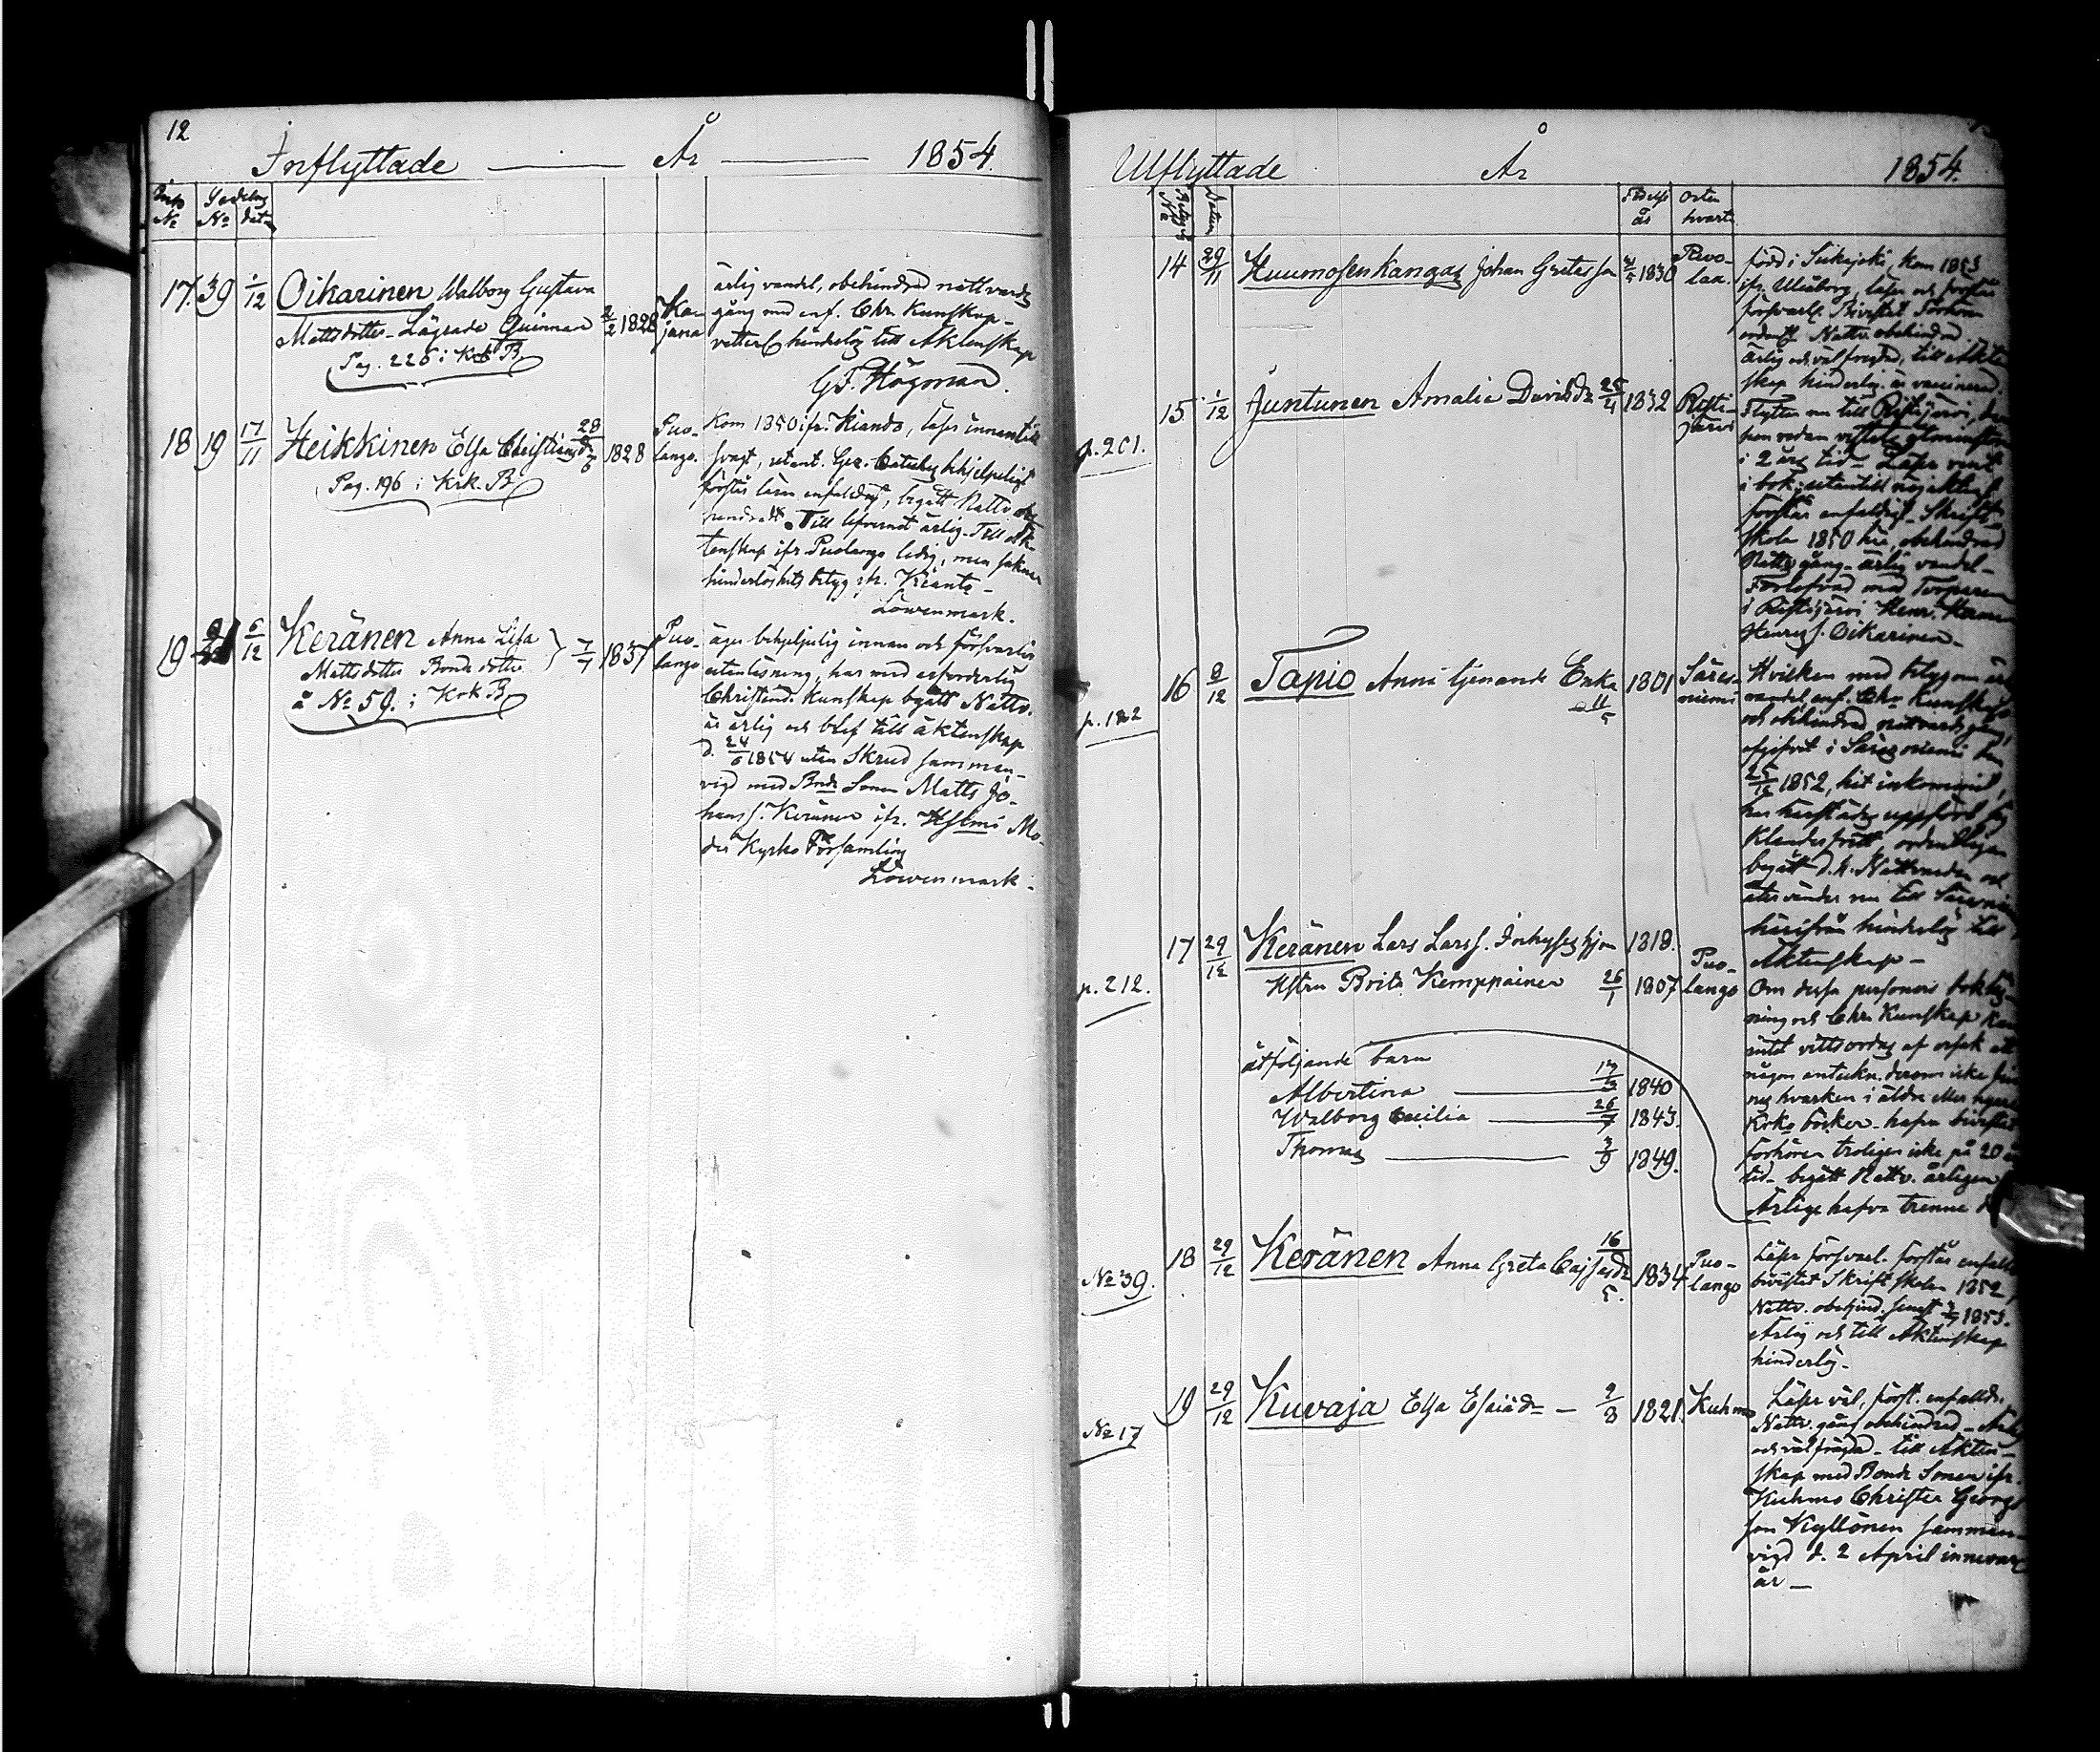 12
Inflyttade År 1854.
No No dat
17. 39 1/12 Oikarinen Walborg Gustava
Mattsdotter Lägrade Quinnan 2/2 1828 Ka-
jana
Pag. 226 i Krk B
ärlig vandel, obehindrad nattvards
gång med enf. Chr. Kunskap
hinderlös till Äktenskap
G F. Högman.
18 19 17/11 Heikkinen Elsa Christiansdr 28/6 1828 Puo-
lango.
Pag. 196 i Krk. B
Kom 1850 ifr. Kianda, läser innantill
svagt, utant. behjelpeligt
förstår enfaldigt, begått Nattv. obe
hindradt. Till lefvernet ärlig. Till äk-
tenskap ifr Puolango ledig, men saknar
hinderlöshets betyg ifr. Kianta
Löwenmark.
19 6/12 Keränen Anna Lisa
Mattsdotter Bonde dotter } 7/7 1837 Puo-
lango
å No 59. i Krk B
äger behjelplig innan och försvarlig
utanläsning, har med erforderlig
Christend. Kunskap begått Nattv.
är ärlig och blef till äktenskap
d. 24/6 1854 utan Skrud samman-
vigd med Bonde Sonen Matts Jo-
hans s. Keränen ifr. Hslmi Mo-
der Kyrko Församling
Löwenmark.
Utflyttade År 1854.
Betyg No Datum Födelse år Orten hvart
14 29/11 Huumosenkangas Johan Gretasson 1830 Revo-
laa.
född i Siikajoki, kom 1853
ifr. Uleåborg, läser och förstår
försvarl. Bivistat Förhören
ordentl. Nattv. obehindrad
ärlig och välfrejdad, till äkten
skap hinderlös. är vaccinerad
p. 201. 15 1/12 Juntunen Amalia Davidsdr 25/4 1832 Risti-
järvi
Flyttar nu till Ristijärvi,
hon redan vistats
i 2 års tid. Läser
i bok, utantill
förstår enfaldigt. Skrift-
skola 1850 här, obehindrad
Nattv. gång. ärlig vandel
Förlofvad med Torparen
i Ristijärvi Henr. Herman
Henrics s. Oikarinen
p. 182 16 8/12 Tapio Anna tjenande Enka 11/5 1801 Säres-
niemi
Hvilken med betyg om
vandel, enf. Chr. Kunskap
och obehindrad nattvardsgång,
afgifvit i Säresniemi den
25/12 1852, hit inkommit,
har härstädes uppfört sig
Klanderfritt, ordentligen
begått d. h. Nattvarden och
återvänder nu till Säresnie
härifrån hinderlös till
Äktenskap
p. 212. 17 29/12 Keränen Lars Larss. Inhyseshjon 1818.
Hstru Brita Kemppainen 26/1 1807 Puo-
lango
Om dessa personers bokläs-
ning och Chr. Kunskap kan
intet vittsordas af orsak att
någon anteckn. derom icke fin
nes hvarken i äldre eller nyare
Krko böcker. hafva bivistat
förhören troligen icke på 20 års
tid. begått Nattv. årligen
Ärlige hafva trenne
åtföljande barn
Albertina 17/3 1840
Walborg Cecilia 26/7 1843.
Thomas 3/9 1849.
No 39. 18 29/12 Keränen Anna Greta Cajsasdr 16/5. 1834 Puo-
lango
Läser försvarl. förstår enfald.
bivistat Skriftskolan 1852,
Nattv. obehind. senast 1853.
Ärlig och till Äktenskap
hinderlös.
No 17 19 29/12 Kuvaja Elsa Esaiædr 9/8 1821. Kuhmo
Läser väl, först. enfaldt.
Nattv. gång obehindrad. Ärlig
och välfrägdad. till Äkten-
skap med Bonde Sonen ifr.
Kuhmo Christer Georgs
son Kyllönen samman-
vigd d. 2 April innevar
år